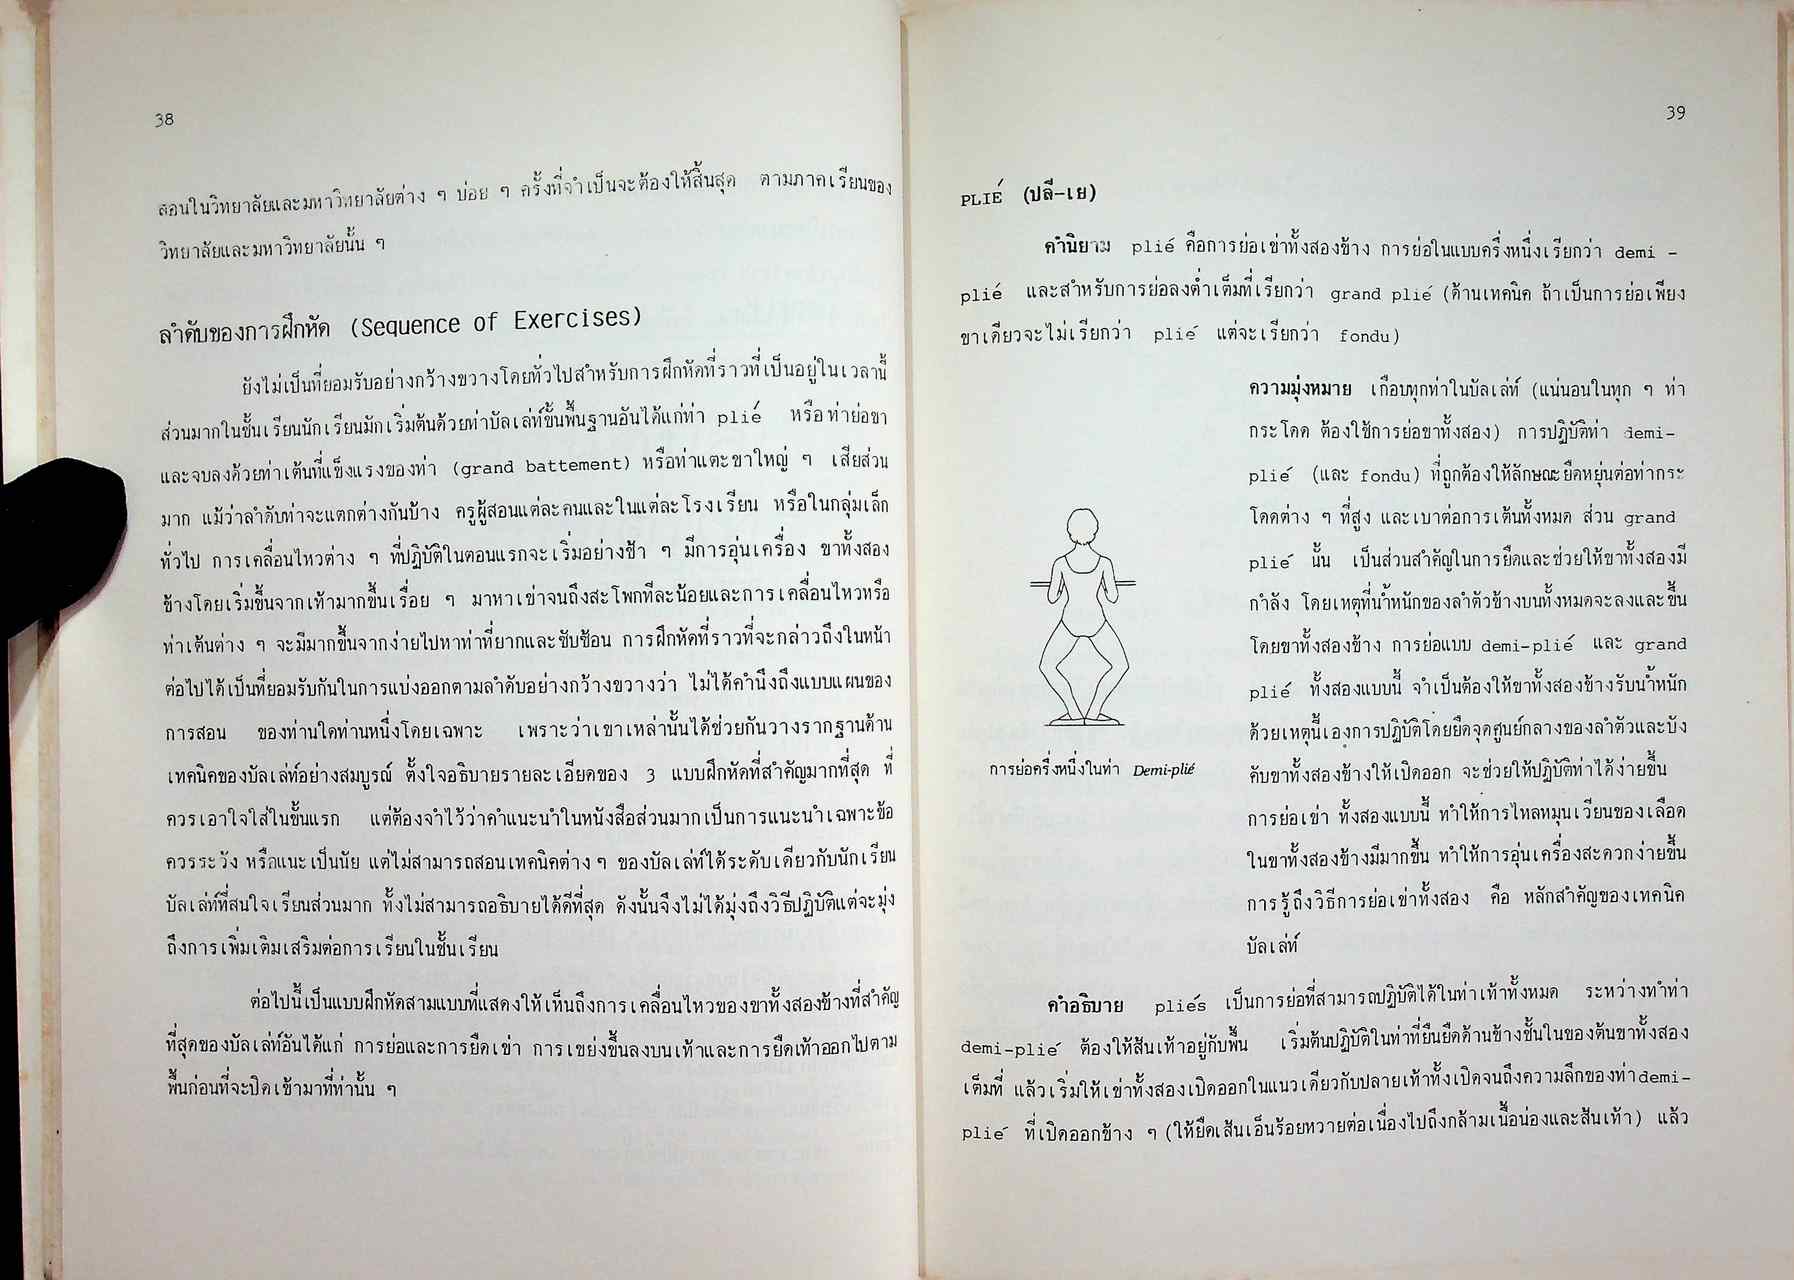 38
สอนในวิทยาลัยและมหาวิทยาลัยต่าง ๆ บ่อย ๆ ครั้งที่จำเป็นจะต้องให้สิ้นสุด ตามภาคเรียนของ
วิทยาลัยและมหาวิทยาลัยนั้น ๆ
ลำดับของการฝึกหัด (Sequence of Exercises)
ยังไม่เป็นที่ยอมรับอย่างกว้างขวางโดยทั่วไปสำหรับการฝึกหัดที่ราวที่เป็นอยู่ในเวลานี้
ส่วนมากในชั้นเรียนนักเรียนมักเริ่มต้นด้วยท่าบัลเล่ท์ขั้นพื้นฐานอันได้แก่ท่า plié หรือท่าย่อขา
และจบลงด้วยท่าเต้นที่แข็งแรงของท่า (grand battement) หรือท่าแตะขาใหญ่ ๆ เสียส่วน
มาก แม้ว่าลำดับท่าจะแตกต่างกันบ้าง ครูผู้สอนแต่ละคนและในแต่ละโรงเรียน หรือในกลุ่มเล็ก
ทั่วไป การเคลื่อนไหวต่าง ๆ ที่ปฏิบัติในตอนแรกจะเริ่มอย่างช้า ๆ มีการอุ่นเครื่อง ขาทั้งสอง
ข้างโดยเริ่มขึ้นจากเท้ามากขึ้นเรื่อย ๆ มาหาเข่าจนถึงสะโพกทีละน้อยและการเคลื่อนไหวหรือ
ท่าเต้นต่าง ๆ จะมีมากขึ้นจากง่ายไปหาท่าที่ยากและซับซ้อน การฝึกหัดที่ราวที่จะกล่าวถึงในหน้า
ต่อไปได้เป็นที่ยอมรับกันในการแบ่งออกตามลำดับอย่างกว้างขวางว่า ไม่ได้คำนึงถึงแบบแผนของ
การสอน ของท่านใดท่านหนึ่งโดยเฉพาะ เพราะว่าเขาเหล่านั้นได้ช่วยกันวางรากฐานด้าน
เทคนิคของบัลเล่ท์อย่างสมบูรณ์ ตั้งใจอธิบายรายละเอียดของ 3 แบบฝึกหัดที่สำคัญมากที่สุด ที่
ควรเอาใจใส่ในขั้นแรก แต่ต้องจำไว้ว่าคำแนะนำในหนังสือส่วนมากเป็นการแนะนำเฉพาะข้อ
ควรระวัง หรือแนะเป็นนัย แต่ไม่สามารถสอนเทคนิคต่าง ๆ ของบัลเล่ท์ได้ระดับเดียวกับนักเรียน
บัลเล่ท์ที่สนใจเรียนส่วนมาก ทั้งไม่สามารถอธิบายได้ดีที่สุด ดังนั้นจึงไม่ได้มุ่งถึงวิธีปฏิบัติแต่จะมุ่ง
ถึงการเพิ่มเติมเสริมต่อการเรียนในชั้นเรียน
ต่อไปนี้เป็นแบบฝึกหัดสามแบบที่แสดงให้เห็นถึงการเคลื่อนไหวของขาทั้งสองข้างที่สำคัญ
ที่สุดของบัลเล่ท์อันได้แก่ การย่อและการยืดเข่า การเขย่งขึ้นลงบนเท้าและการยืดเท้าออกไปตาม
พื้นก่อนที่จะปิดเข้ามาที่ท่านั้น ๆ
39
PLIÉ (ปลี-เย)
คำนิยาม plié คือการย่อเข่าทั้งสองข้าง การย่อในแบบครึ่งหนึ่งเรียกว่า demi -
plié และสำหรับการย่อลงต่ำเต็มที่เรียกว่า grand plié (ด้านเทคนิค ถ้าเป็นการย่อเพียง
ขาเดียวจะไม่เรียกว่า plié แต่จะเรียกว่า fondu)
ความมุ่งหมาย เกือบทุกท่าในบัลเล่ท์ (แน่นอนในทุก ๆ ท่า
กระโดด ต้องใช้การย่อขาทั้งสอง) การปฏิบัติท่า demi-
plié (และ fondu) ที่ถูกต้องให้ลักษณะยืดหยุ่นต่อท่ากระ
โดดต่าง ๆ ที่สูง และเบาต่อการเต้นทั้งหมด ส่วน grand
plié นั้น เป็นส่วนสำคัญในการยืดและช่วยให้ขาทั้งสองมี
กำลัง โดยเหตุที่น้ำหนักของลำตัวข้างบนทั้งหมดจะลงและขึ้น
โดยขาทั้งสองข้าง การย่อแบบ demi-plié และ grand
plié ทั้งสองแบบนี้ จำเป็นต้องให้ขาทั้งสองข้างรับน้ำหนัก
ด้วยเหตุนี้เองการปฏิบัติโดยยึดจุดศูนย์กลางของลำตัวและบัง
คับขาทั้งสองข้างให้เปิดออก จะช่วยให้ปฏิบัติท่าได้ง่ายขึ้น
การย่อเข่า ทั้งสองแบบนี้ ทำให้การไหลหมุนเวียนของเลือด
ในขาทั้งสองข้างมีมากขึ้น ทำให้การอุ่นเครื่องสะดวกง่ายขึ้น
การรู้ถึงวิธีการย่อเข่าทั้งสอง คือ หลักสำคัญของเทคนิค
บัลเล่ท์
การย่อครึ่งหนึ่งในท่า Demi-plié
คำอธิบาย pliés เป็นการย่อที่สามารถปฏิบัติได้ในท่าเท้าทั้งหมด ระหว่างทำท่า
demi-plié ต้องให้ส้นเท้าอยู่กับพื้น เริ่มต้นปฏิบัติในท่าที่ยืนยืดด้านข้างชั้นในของต้นขาทั้งสอง
เต็มที่ แล้วเริ่มให้เข่าทั้งสองเปิดออกในแนวเดียวกับปลายเท้าทั้งเปิดจนถึงความลึกของท่าdemi-
plié ที่เปิดออกข้าง ๆ (ให้ยืดเส้นเอ็นร้อยหวายต่อเนื่องไปถึงกล้ามเนื้อน่องและส้นเท้า) แล้ว